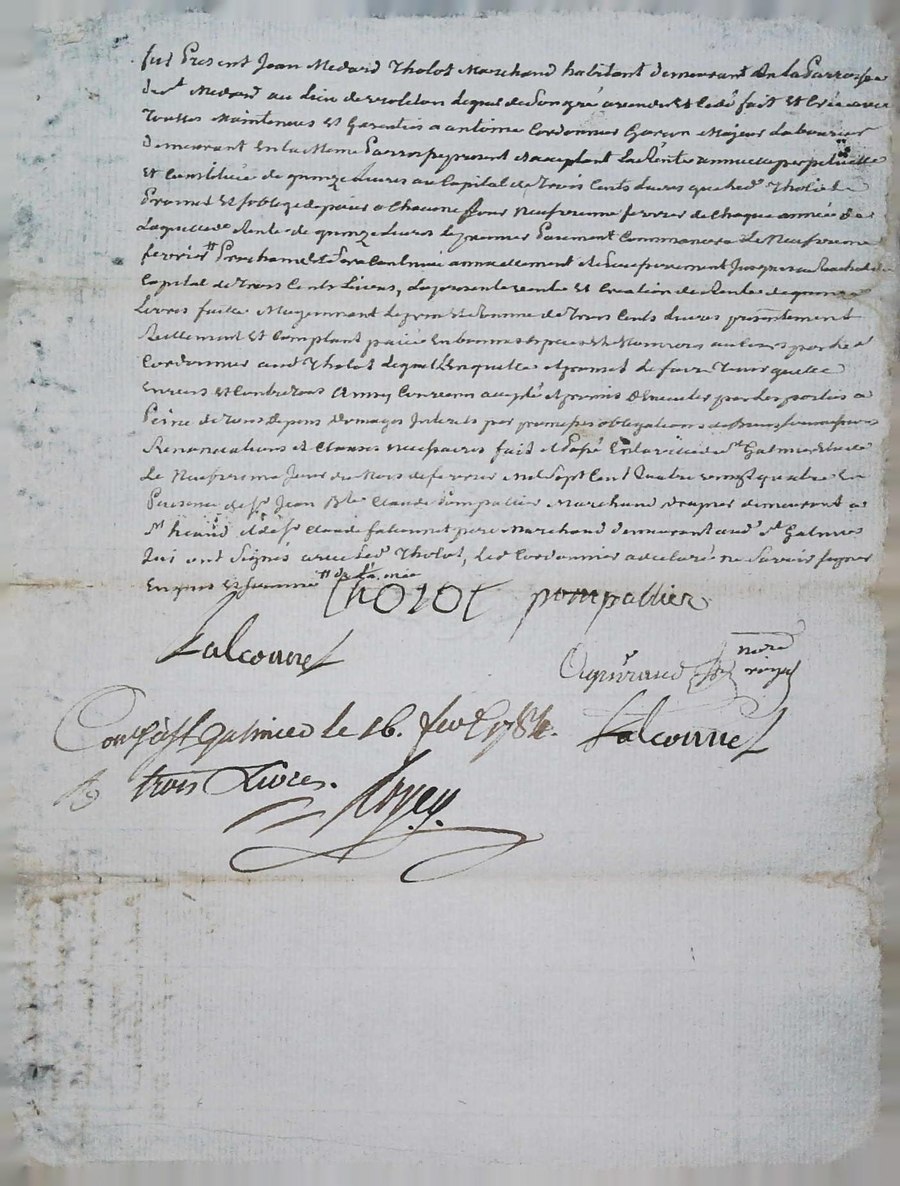 fut Present Jean Medard Tholot Marchand habitant demeurant En la Parroisse
de St Medard au lieu de lequel de Son gré a vendu Et Cedé fait Et Créé avec
Touttes Maintenues Et Garenties a antoine Cordonnier Garcon Majeur Laboureur
Demeurant En la Meme Parroisse present Et acceptant La Rente annuelle perpetuelle
Et Constituée de quinze Livres au Capital de Trois Cents Livres que led. Tholot
Promet Et soblige de paier a Chacune Jour Neufvieme fevrier de Chaque année
Laquelle Rente de quinze Livres le premier Paiment Commancera le Neufvieme
fevrier Prochain Et Sera Continué annuellement Jusques au Rachat
Capital de Trois Cents Livres, La presente vente Et Creation de Rente de quinze
Livres faitte Moyennant le prix Et Somme de Trois Cents Livres presentement
Reellement Et Comptant paiée En bonnes Espeses Et Monnoies au Cours par led.
Cordonnier aud Tholot lequel L'en quitte Et promet de faire Tenir quitte
Envers Et Contre Tous Ainsy Convenu accepté Et promis Executer par les parties a
Peine de Tous depens domages Interets par promesses obligations
Renonciations Et Clauses necessaires fait Et Passé En la ville de St Galmier Etude
Le Neufvieme Jour du Mois de fevrier mil Sept Cent Quatre vingt quatre En
Presence de Sr. Jean Bte Claude Pompallier Marchand Drapier demeurant a
St. & de Sr Claude falconnet pere Marchand demeurant aud. St Galmier
Qui ont Signés avec led. Tholot, Led Cordonnier a declaré ne Savoir Signer
Enquis Et Somme
Tholot pompallier
falconnet
nore
royal
Con. à St galmier le 16. fev. 1784. falconnet
R. trois Livres.